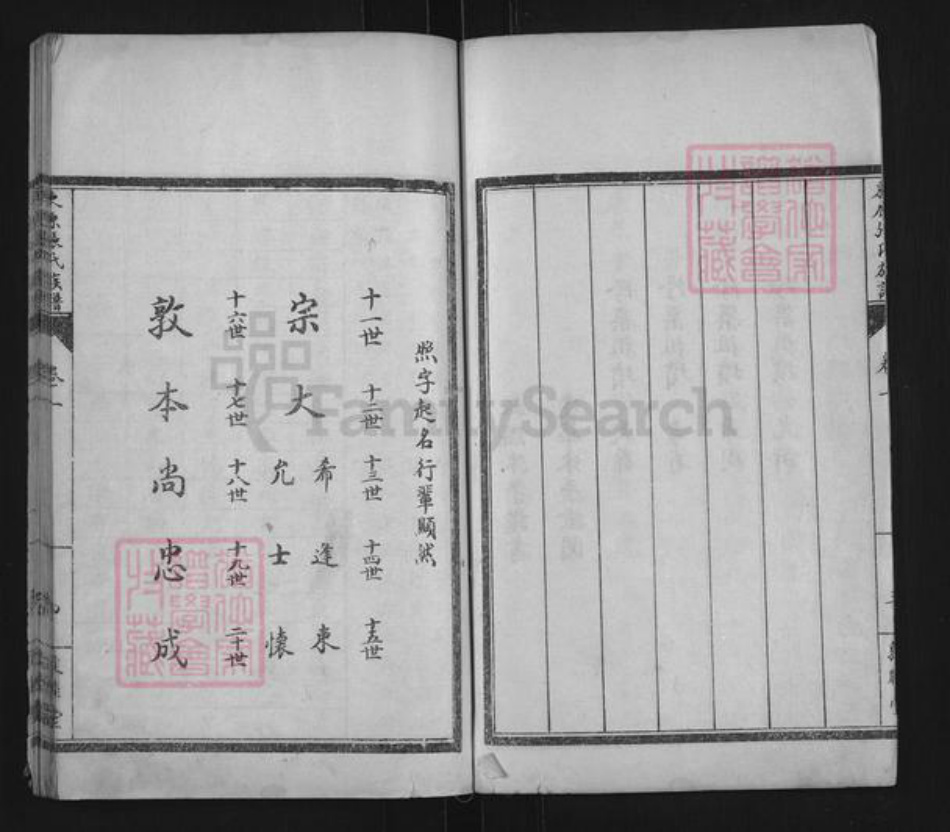 照字起名行輩顯然
十一世 十二世 十三世 十四世 十五世
宗 大 希 逢 東
允 士 懷
十六世 十七世 十八世 十九世 二十世
敦 本 尚 忠 成
張氏族譜
卷一
FamilySearch